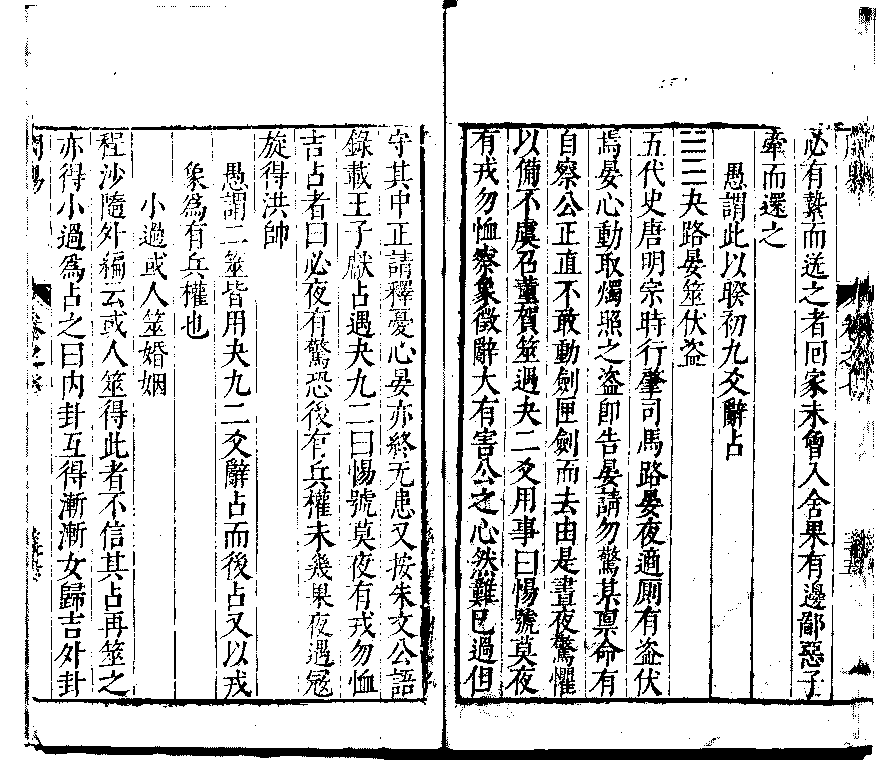 必有縶而送之者回家未會入舍果有邊鄙惡子
牽而還之
愚謂此以睽初九爻辭占
夬路晏筮伏盗
五代史唐明宗時行肇司馬路晏夜適厠有盗伏
焉晏心動取燭照之盗卽告晏請勿驚某禀命有
自察公正直不敢動劍匣劍而去由是晝夜驚懼
以備不虞召董賀筮遇夬二爻用事曰惕號莫夜
有戎勿恤察象徵辭大有害公之心然難已過但
守其中正請釋憂心晏亦終无患又按朱文公語
錄載王子獻占遇夬九二曰惕號莫夜有戎勿恤
吉占者曰必夜有驚恐後有兵權未幾果夜遇寇
旋得洪帥
愚謂二筮皆用夬九二爻辭占而後占又以戎
象為有兵權也
小過或人筮婚姻
程沙隨外編云或人筮得此者不信其占再筮之
亦得小過為占之曰内卦互得漸漸女歸吉外卦